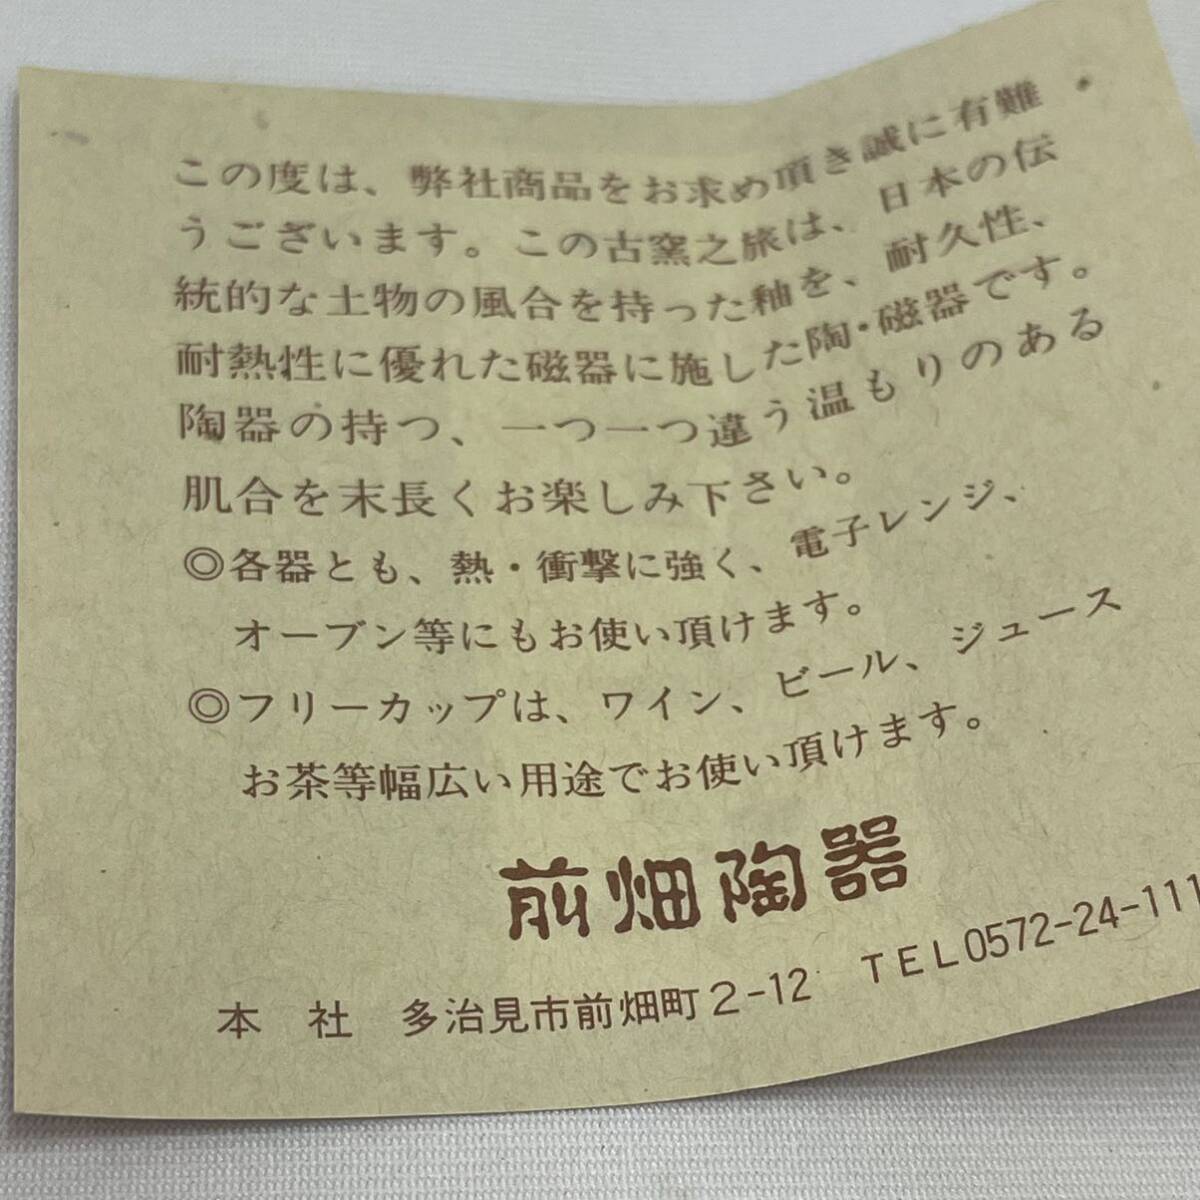 この度は、弊社商品をお求め頂き誠に有難
うございます。この古窯之旅は、日本の伝
統的な土物の風合を持った釉を、耐久性、
耐熱性に優れた磁器に施した陶・磁器です。
陶器の持つ、一つ一つ違う温もりのある
肌合を末長くお楽しみ下さい。
◎各器とも、熱・衝撃に強く、電子レンジ、
オーブン等にもお使い頂けます。
◎フリーカップは、ワイン、ビール、ジュース
お茶等幅広い用途でお使い頂けます。
前畑陶器
本 社 多治見市前畑町2-12 TEL0572-24-111